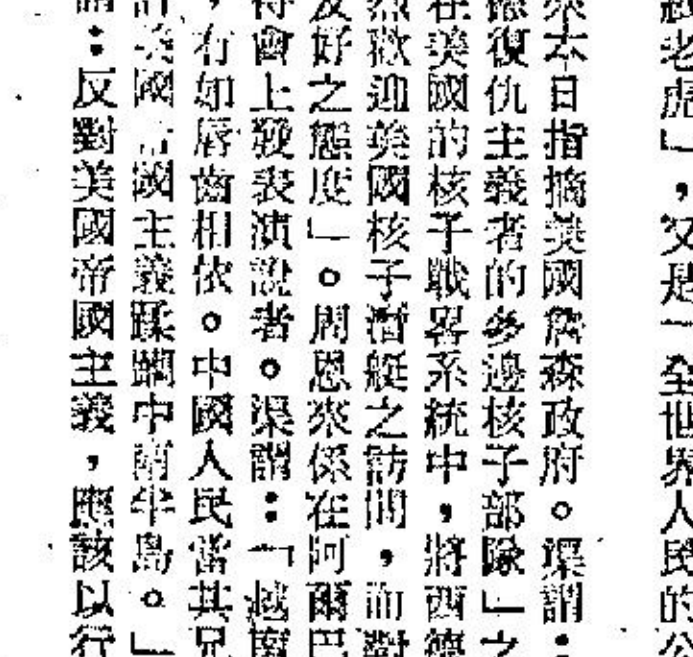 紙老虎」，又是「全世界人民的公
來本日指摘美國詹森政府。渠謂：
德復仇主義者的多邊核子部隊」之
在美國的核子戰畧系統中，將西德
烈歡迎美國核子潛艇之訪問，而對
友好之態度」。周恩來係在阿爾巴
待會上發表演說者。渠謂：「越南
，有如唇齒相依。中國人民當其兄
許美國帝國主義蹂躪中南半島。」
謂：反對美國帝國主義，應該以行